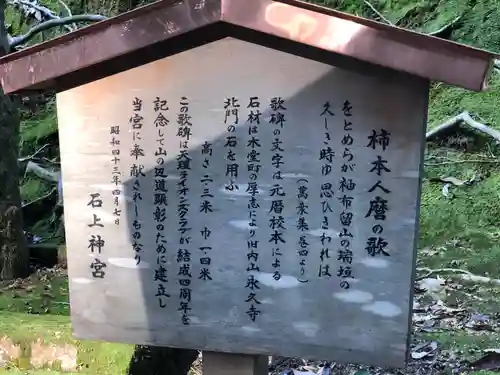 柿本人麿の歌
をとめらが袖布留山の瑞垣の
久しき時ゆ思ひきわれは
(萬葉巻四より)
歌碑の文字は元暦校本
石材は木堂町の厚志により旧内山永久寺
北門の石を用ふ
高さ二・三米 巾一・四米
この歌碑は天理ライオンズクラブが結成四周年を
記念して山の辺道顕彰のために建立し
当宮に奉献されしものなり
昭和四十三年四月七日
石上神宮